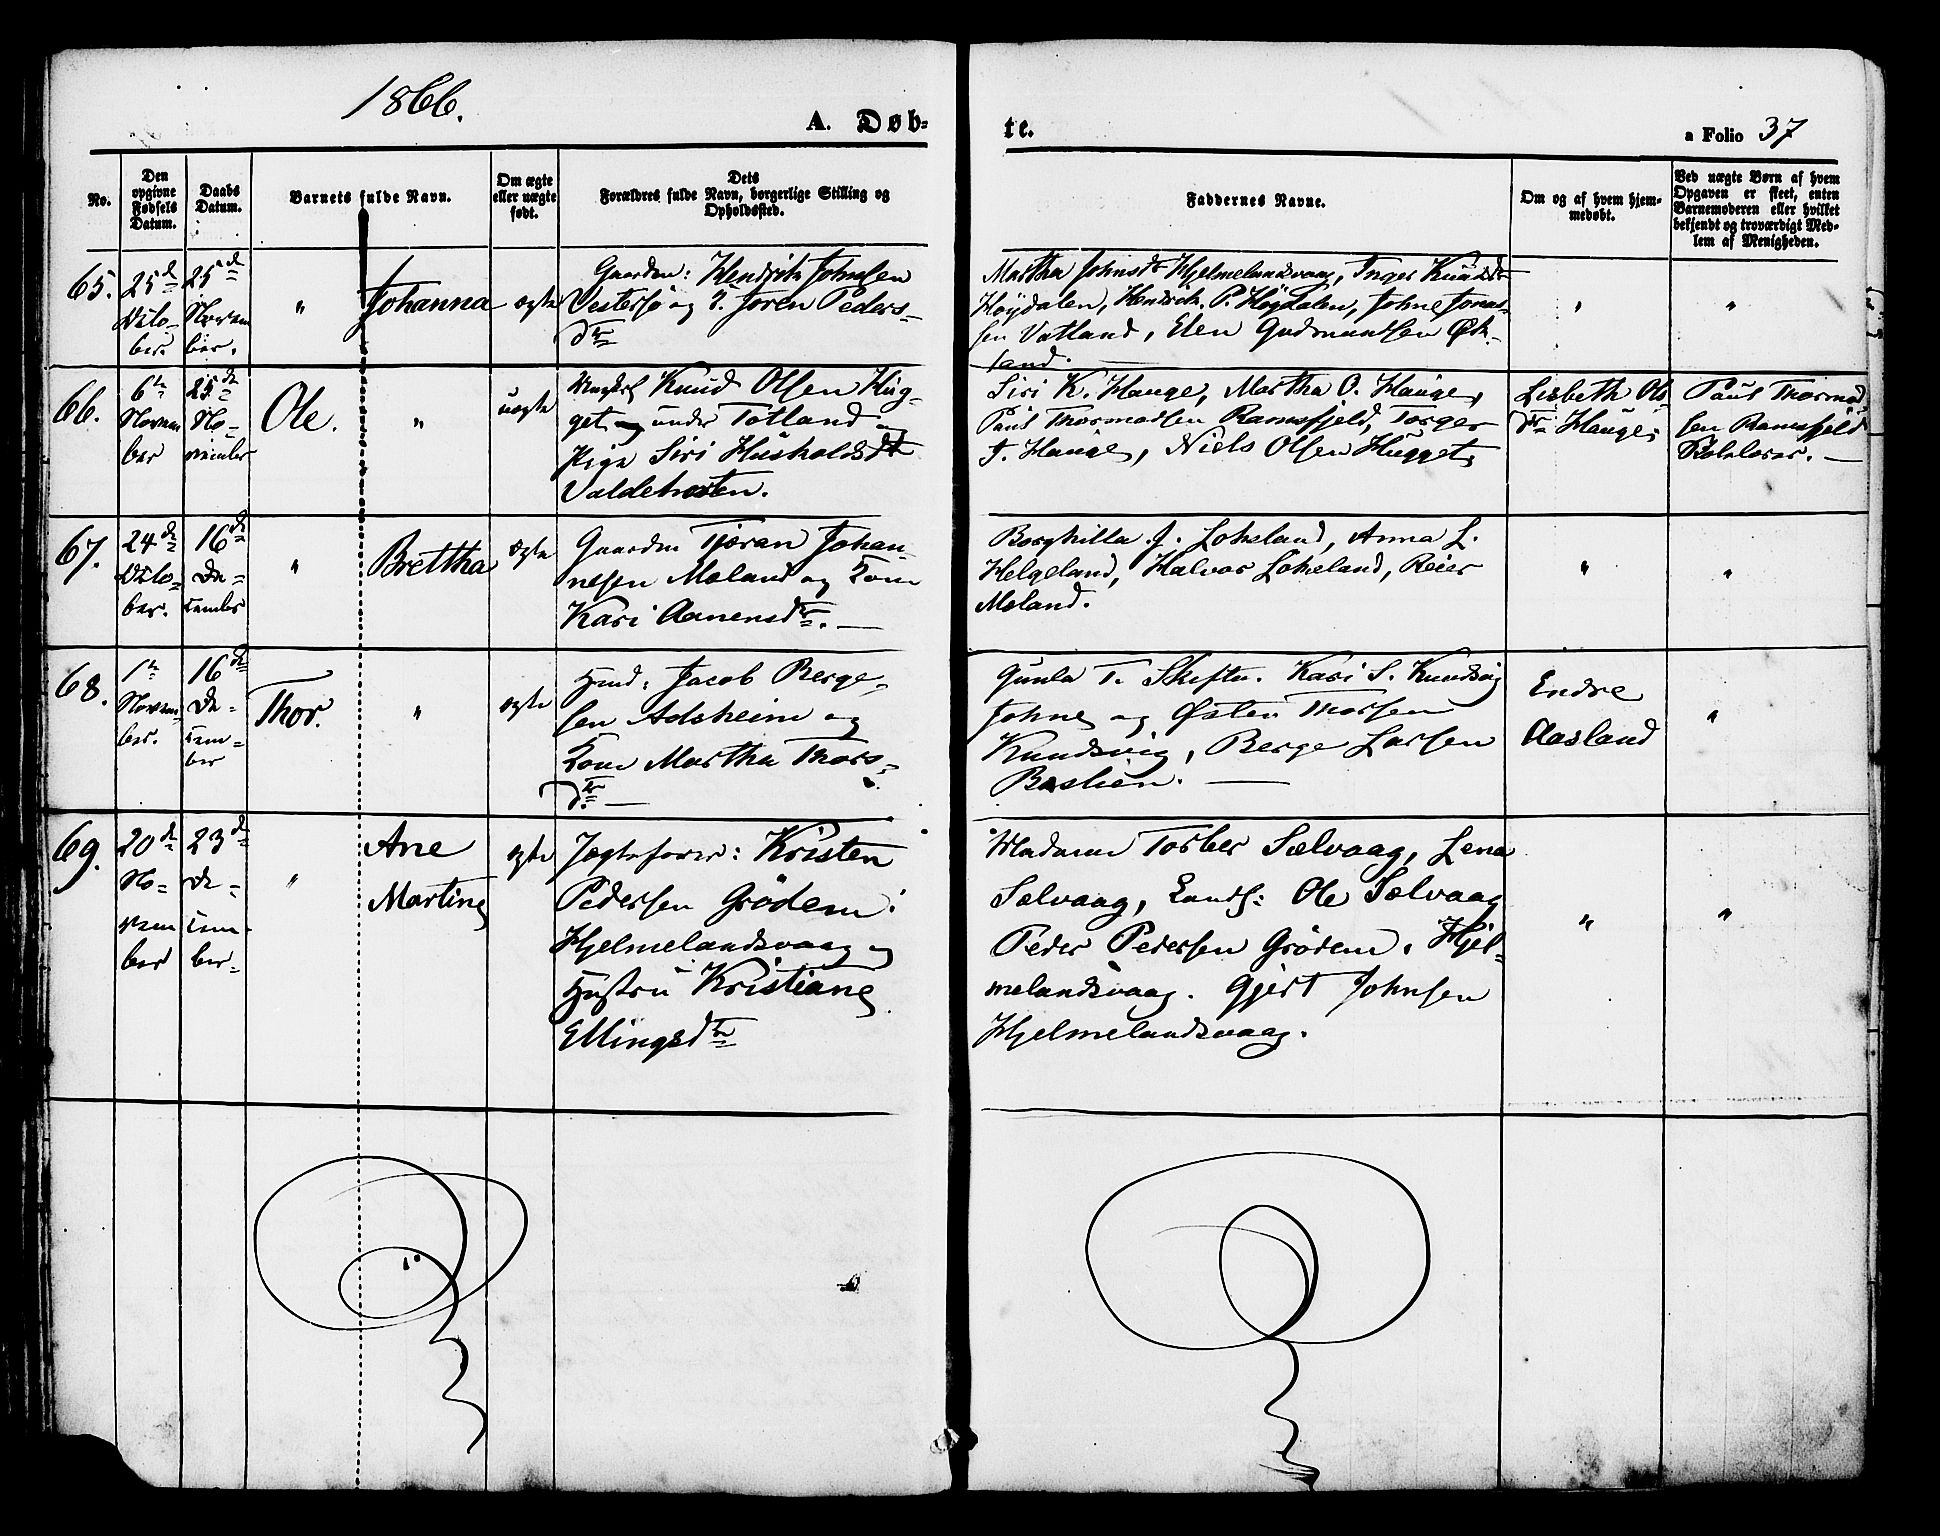 1866.
A. Døb-
te.
a Folio 37
No.
Den opgivne Fødsels Datum.
Daabs Datum.
Barnets fulde Navn.
Om ægte eller uægte født.
Dets Forældres fulde Navn, borgerlige Stilling og Opholdssted.
Faddernes Navne.
Om og af hvem hjemmedøbt.
Ved uægte Børn af hvem Opgaven er skeet, enten Barnemoderen eller hvilket bekjendt og troværdigt Medlem af Menigheden.
65.
25de
Octo-
ber.
25de
Novem
ber.
"
Johanna
ægte
Gaardm: Hendrik Johnsen
Vestersjø og Joren Peders-
dtr
Martha Johnsdtr Hjelmelandsvaag, Inger Knudsdtr
Høgdalen, Hendrik P. Høgdalen, Johne Jonas-
sen Vatland, Elen Gudmundsen Øk-
land.
"
"
66.
6te
Novem
ber
25de
No-
vember
Ole.
"
uægte
Knud Olsen Hug-
get, under Totland og
Pige Siri Husholdsdtr
Valdehesten.
Siri K. Hauge, Martha O. Hauge,
Paul Thormodsen Ramsfjeld, Torger
T. Hauge, Niels Olsen Hugget,
Lisbeth Ols
dtr Hauge,
Paul Thormod
sen Ramsfjeld
Skolelærer.
67.
24de
Octo-
ber.
16de
De-
cember
"
Brettha
ægte
Gaardm Tjøran Johan-
nesen Meland og Kone
Kari Aanensdtr.
Borghilla J. Løkeland, Anna L.
Helgeland, Halvor Løkeland, Reier
Meland.
"
"
68.
1te
Novem-
ber.
16de
De-
cem-
ber
Thor.
"
ægte
Huusm: Jacob Berge-
sen Adsheim og
Kone Martha Thors-
dtr.
Gunla T. Skiftu. Kari S. Knudsvig
Johne og Østen Thorsen
Knudsvig, Berge Larsen
Baslien.
Endre
Aasland
"
69.
20de
No-
vem
ber
23de
De-
cem-
ber.
"
Ane
Martine
ægte
Jægtefører: Kristen
Pedersen Grødem.
Hjelmelandsvaag og
Hustru Kristiane
Ellingsdtr
Madame Torber Sælvaag, Lena
Sælvaag, Landh: Ole Sælvaag
Peder Pedersen Grødem, Hjel-
melandsvaag. Gjert Johnsen
Hjelmelandsvaag.
"
"